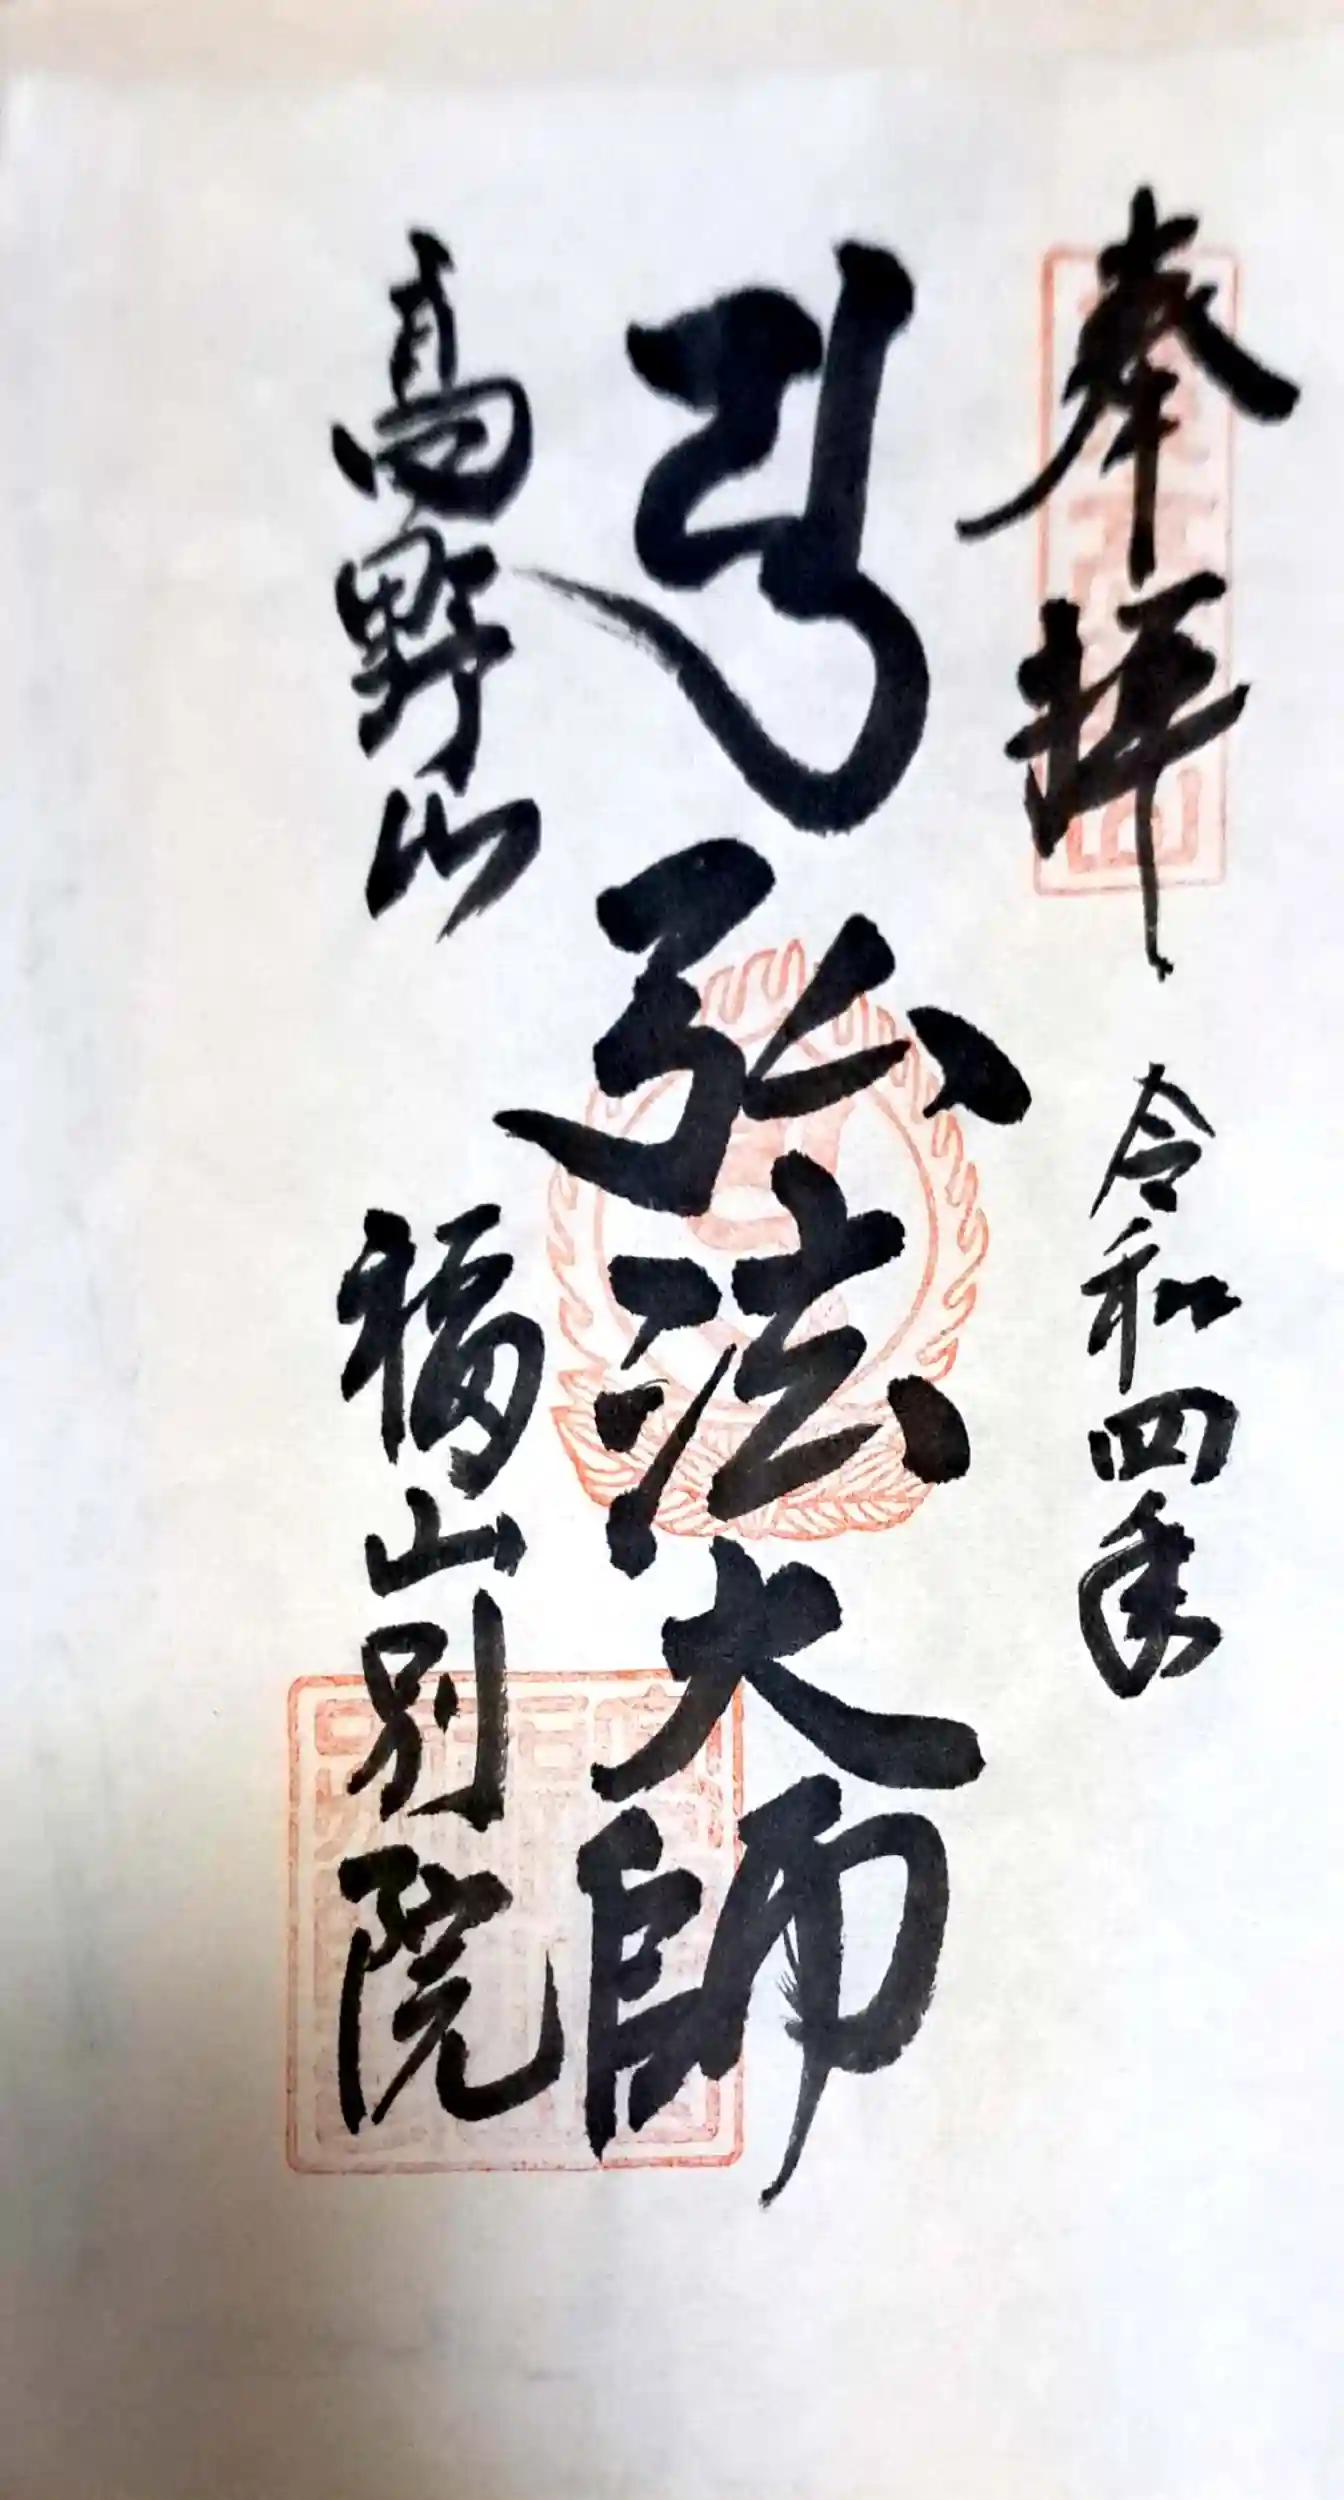 奉拝 令和四年
弘法大師
高野山 福山別院